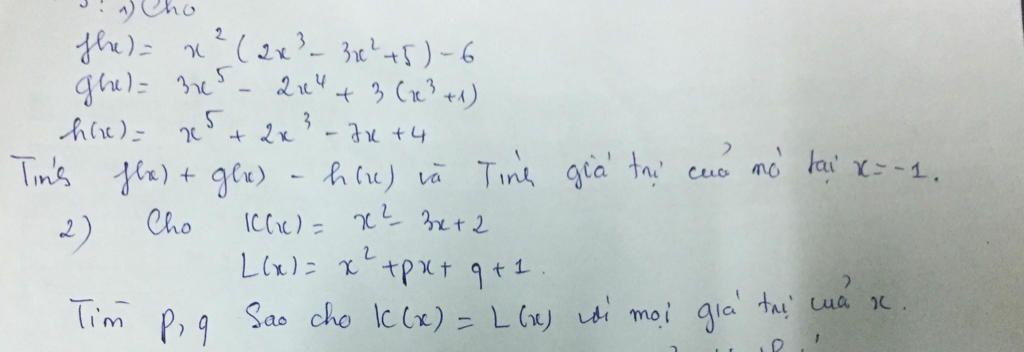 1) Cho
f(x) = x² (2x³ - 3x² + 5) - 6
g(x) = 3x⁵ - 2x⁴ + 3 (x³ + 1)
h(x) = x⁵ + 2x³ - 7x + 4
Tính f(x) + g(x) - h(x) và Tính giá trị cuả nó tại x = -1.
2) Cho K(x) = x² - 3x + 2
L(x) = x² + px + q + 1.
Tìm p, q Sao cho K(x) = L(x) với mọi giá trị cuả x.